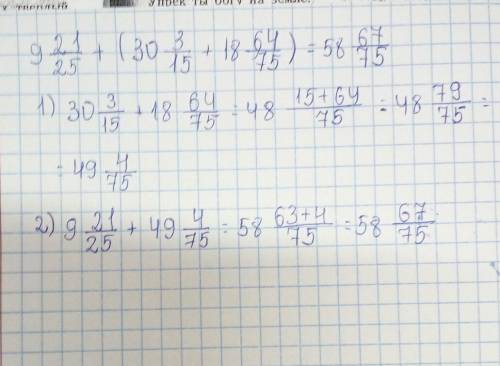 Упрёк ты богу на земле.
9 21/25 + (30 3/15 + 18 64/75) = 58 67/75
1) 30 3/15 + 18 64/75 = 48 15+64/75 = 48 79/75 =
= 49 4/75
2) 9 21/25 + 49 4/75 = 58 63+4/75 = 58 67/75